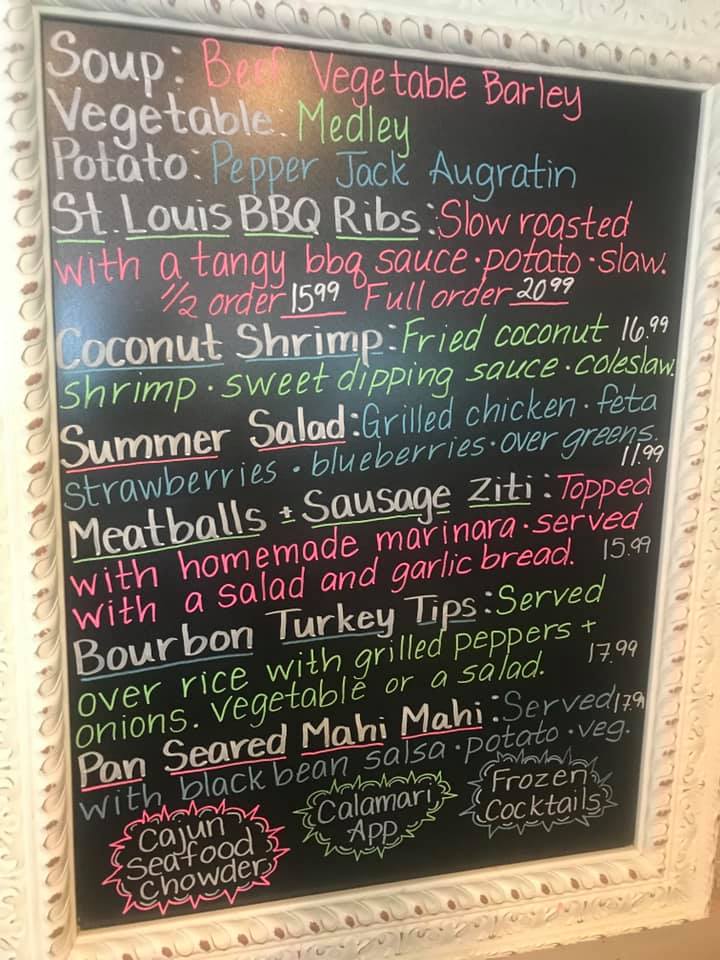 Soup: Beef Vegetable Barley
Vegetable: Medley
Potato: Pepper Jack Augratin
St. Louis BBQ Ribs: Slow roasted
with a tangy bbq sauce · potato · slaw.
1/2 order 15.99 Full order 20.99
Coconut Shrimp: Fried coconut 16.99
shrimp · sweet dipping sauce · coleslaw.
Summer Salad: Grilled chicken · feta
strawberries · blueberries · over greens.
11.99
Meatballs + Sausage Ziti: Topped
with homemade marinara · served
with a salad and garlic bread. 15.99
Bourbon Turkey Tips: Served
over rice with grilled peppers +
onions. Vegetable or a salad. 17.99
Pan Seared Mahi Mahi: Served 17.99
with black bean salsa · potato · veg.
Cajun
Seafood
Chowder
Calamari
App
Frozen
Cocktails